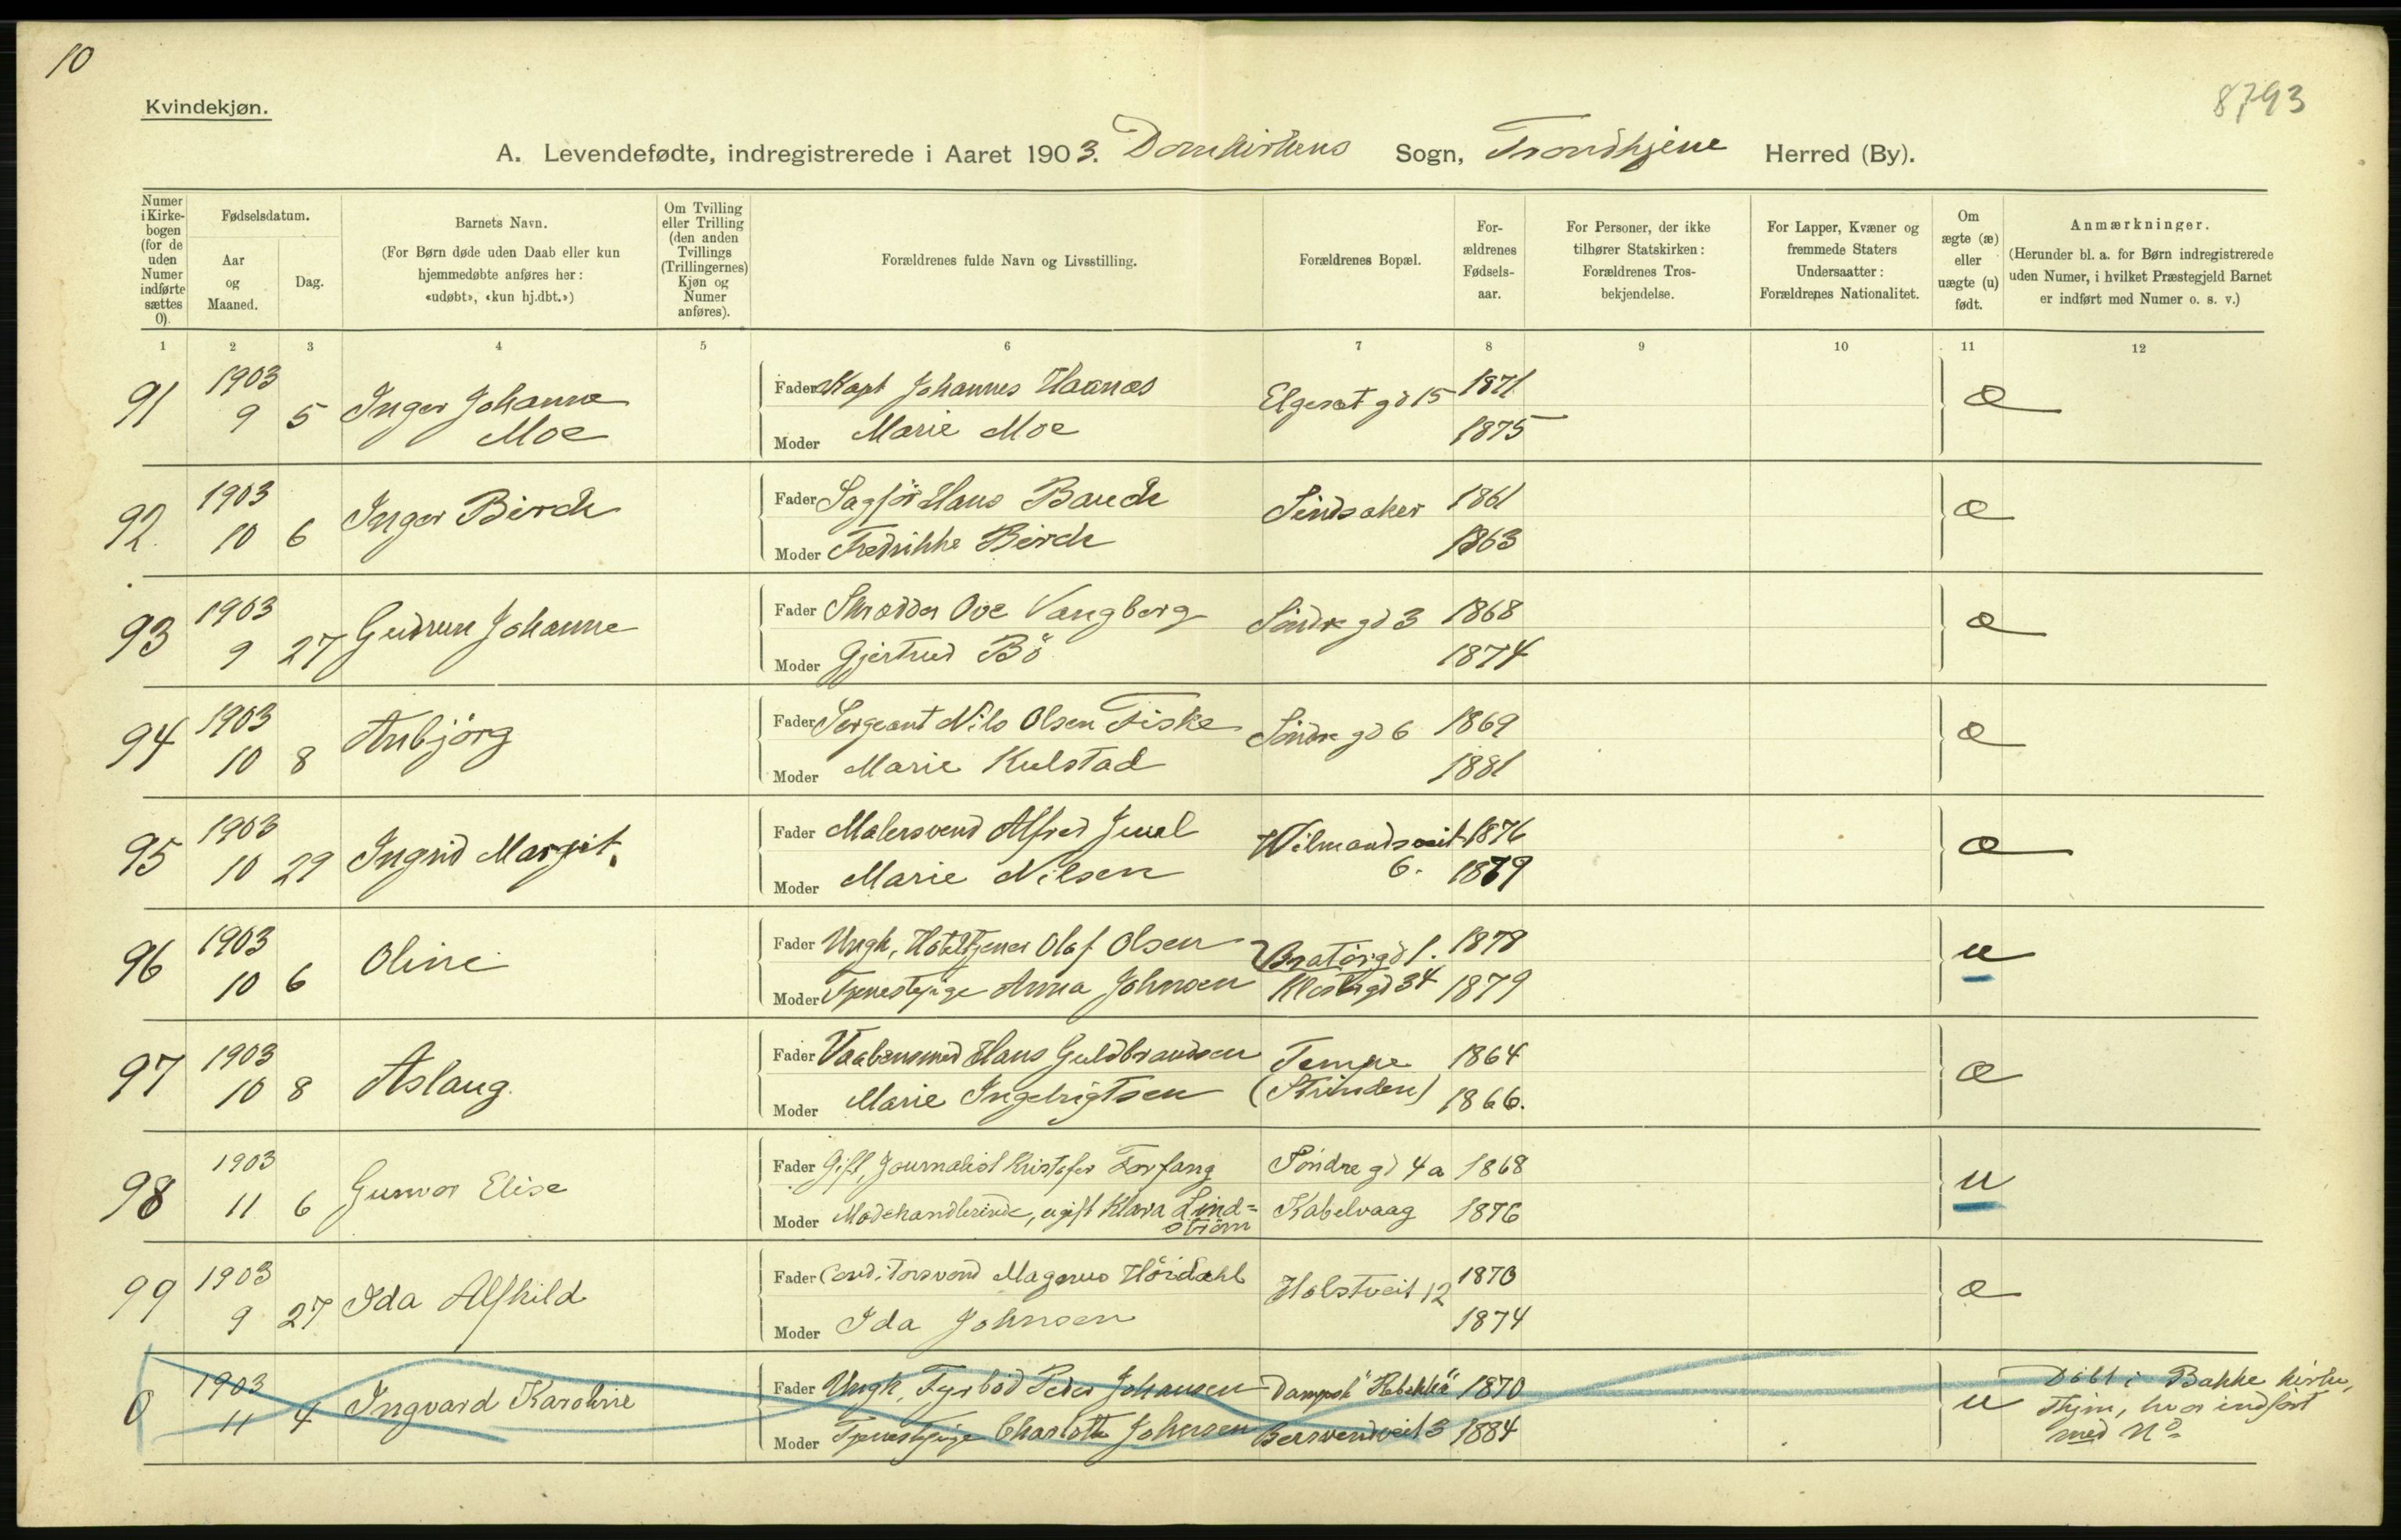 10
8793
Kvindekjøn.
A. Levendefødte, indregistrerede i Aaret 1903. Domkirkens Sogn, Trondhjem Herred (By).
Numer i Kirkebogen (for de uden Numer indførte sættes 0).
Fødselsdatum.
Aar og Maaned.
Dag.
Barnets Navn.
(For Børn døde uden Daab eller kun hjemmedøbte anføres her: «udøbt», «kun hj.dbt.»)
Om Tvilling eller Trilling (den anden Tvillings (Trillingernes) Kjøn og Numer anføres).
Forældrenes fulde Navn og Livsstilling.
Forældrenes Bopæl.
Forældrenes Fødselsaar.
For Personer, der ikke tilhører Statskirken: Forældrenes Trosbekjendelse.
For Lapper, Kvæner og fremmede Staters Undersaatter: Forældrenes Nationalitet.
Om ægte (æ) eller uægte (u) født.
Anmærkninger.
(Herunder bl. a. for Børn indregistrerede uden Numer, i hvilket Præstegjeld Barnet er indført med Numer o. s. v.)
1 2 3 4 5 6 7 8 9 10 11 12
91 1903 9 5 Inger Johanne Moe
Fader Kapt Johannes Haanæs Elgesæt gd 15 1871 æ
Moder Marie Moe 1875
92. 1903 10 6 Inger Birch
Fader Sagför Hans Bauck Sindsaker 1861 æ
Moder Fredrikke Birch 1863
93 1903 9 27 Gudrun Johanne
Fader Skrædder Ove Vangberg Söndre gd 3 1868 æ
Moder Gjertrud Bö 1874
94 1903 10 8 Anbjörg
Fader Sergeant Nils Olsen Fiske Söndre gd 6 1869 æ
Moder Marie Kulstad 1881
95 1903 10 29 Ingrid Margit.
Fader Malersvend Alfred Juul Wilmandsveit 6. 1876 æ
Moder Marie Nilsen 1879
96 1903 10 6 Oline
Fader Ungk, Hoteltjener Olaf Olsen Bratörgd 1. 1878 u
Moder Tjenestepige Anna Johnsen Klostergd 34 1879
97 1903 10 8 Aslaug.
Fader Vaabensmed Hans Guldbrandsen Tempe 1864 æ
Moder Marie Ingebrigtsen (Strinden) 1866.
98 1903 11 6 Gunvor Elise
Fader Gift, Journalist Kristofer Forfang Söndre gd 4a 1868 u
Moder Modehandlerinde, ugift Klara Lindström Kabelvaag 1876
99 1903 9 27 Ida Alfhild
Fader Conditorsvend Magnus Hördahl Holstveit 12 1870 æ
Moder Ida Johnsen 1874
0 1903 11 4 Ingvard Karoline
Fader Ungk, Fyrbød Peder Johansen Dampsk 1870 u Döbt i Bakke kirke,
Moder Tjenestepige Charlotte Johansen Bersvendveit 3 1884 Thjm, hvor indført
med No